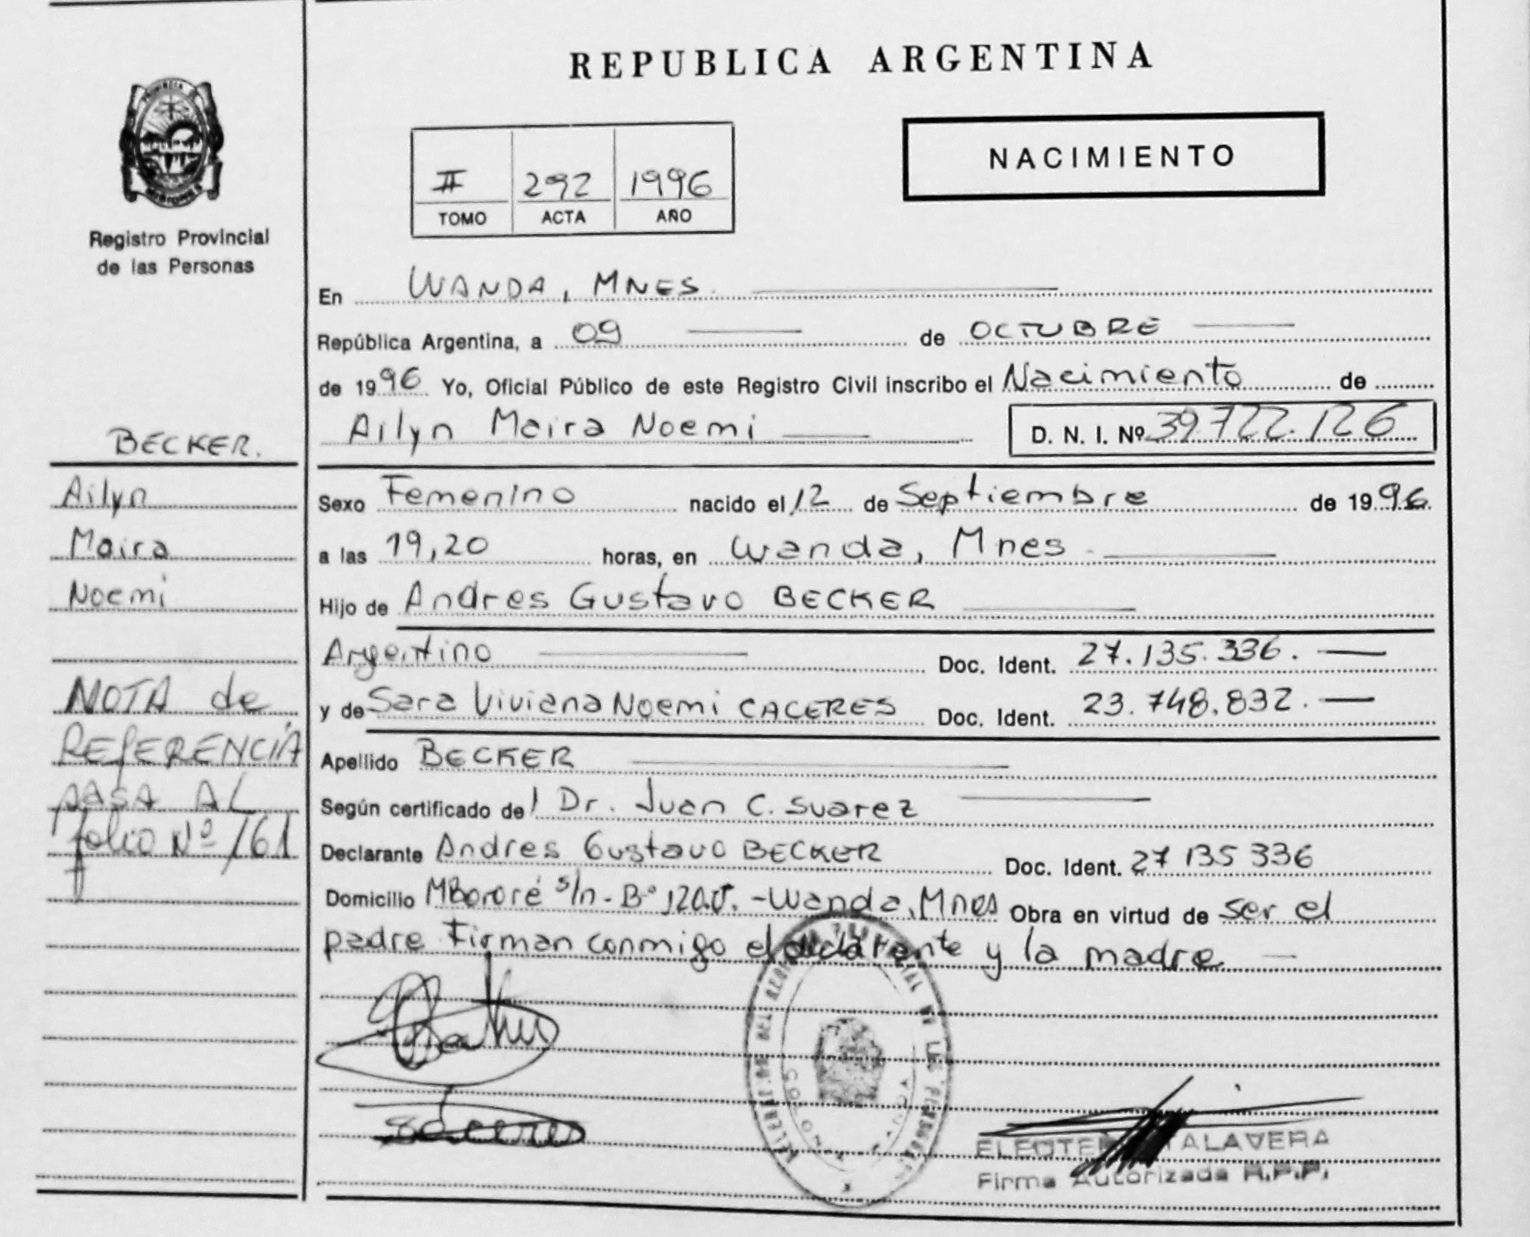 REPUBLICA ARGENTINA
NACIMIENTO
II 292 1996
TOMO ACTA AÑO
PROVINCIA DE
MISIONES
Registro Provincial
de las Personas
En WANDA, MNES.
República Argentina, a 09 de OCTUBRE
de 1996 Yo, Oficial Público de este Registro Civil inscribo el Nacimiento de
Ailyn Maira Noemi D. N. I. Nº 39.722.126
BECKER.
Ailyn
Maira
Noemi
NOTA de
REFERENCIA
PASA AL
folio Nº 161
Sexo Femenino nacido el 12 de Septiembre de 1996.
a las 19,20 horas, en Wanda, Mnes.
Hijo de Andres Gustavo BECKER
Argentino Doc. Ident. 27.135.336.
y de Sara Viviana Noemi CACERES Doc. Ident. 23.748.832.
Apellido BECKER
Según certificado del Dr. Juan C. Suarez
Declarante Andres Gustavo BECKER Doc. Ident. 27 135 336
Domicilio MBororé s/n - Bº 120.V. - Wanda, Mnes Obra en virtud de ser el
padre Firman conmigo el declarante y la madre
TALAVERA
Firma Autorizada R.P.P.